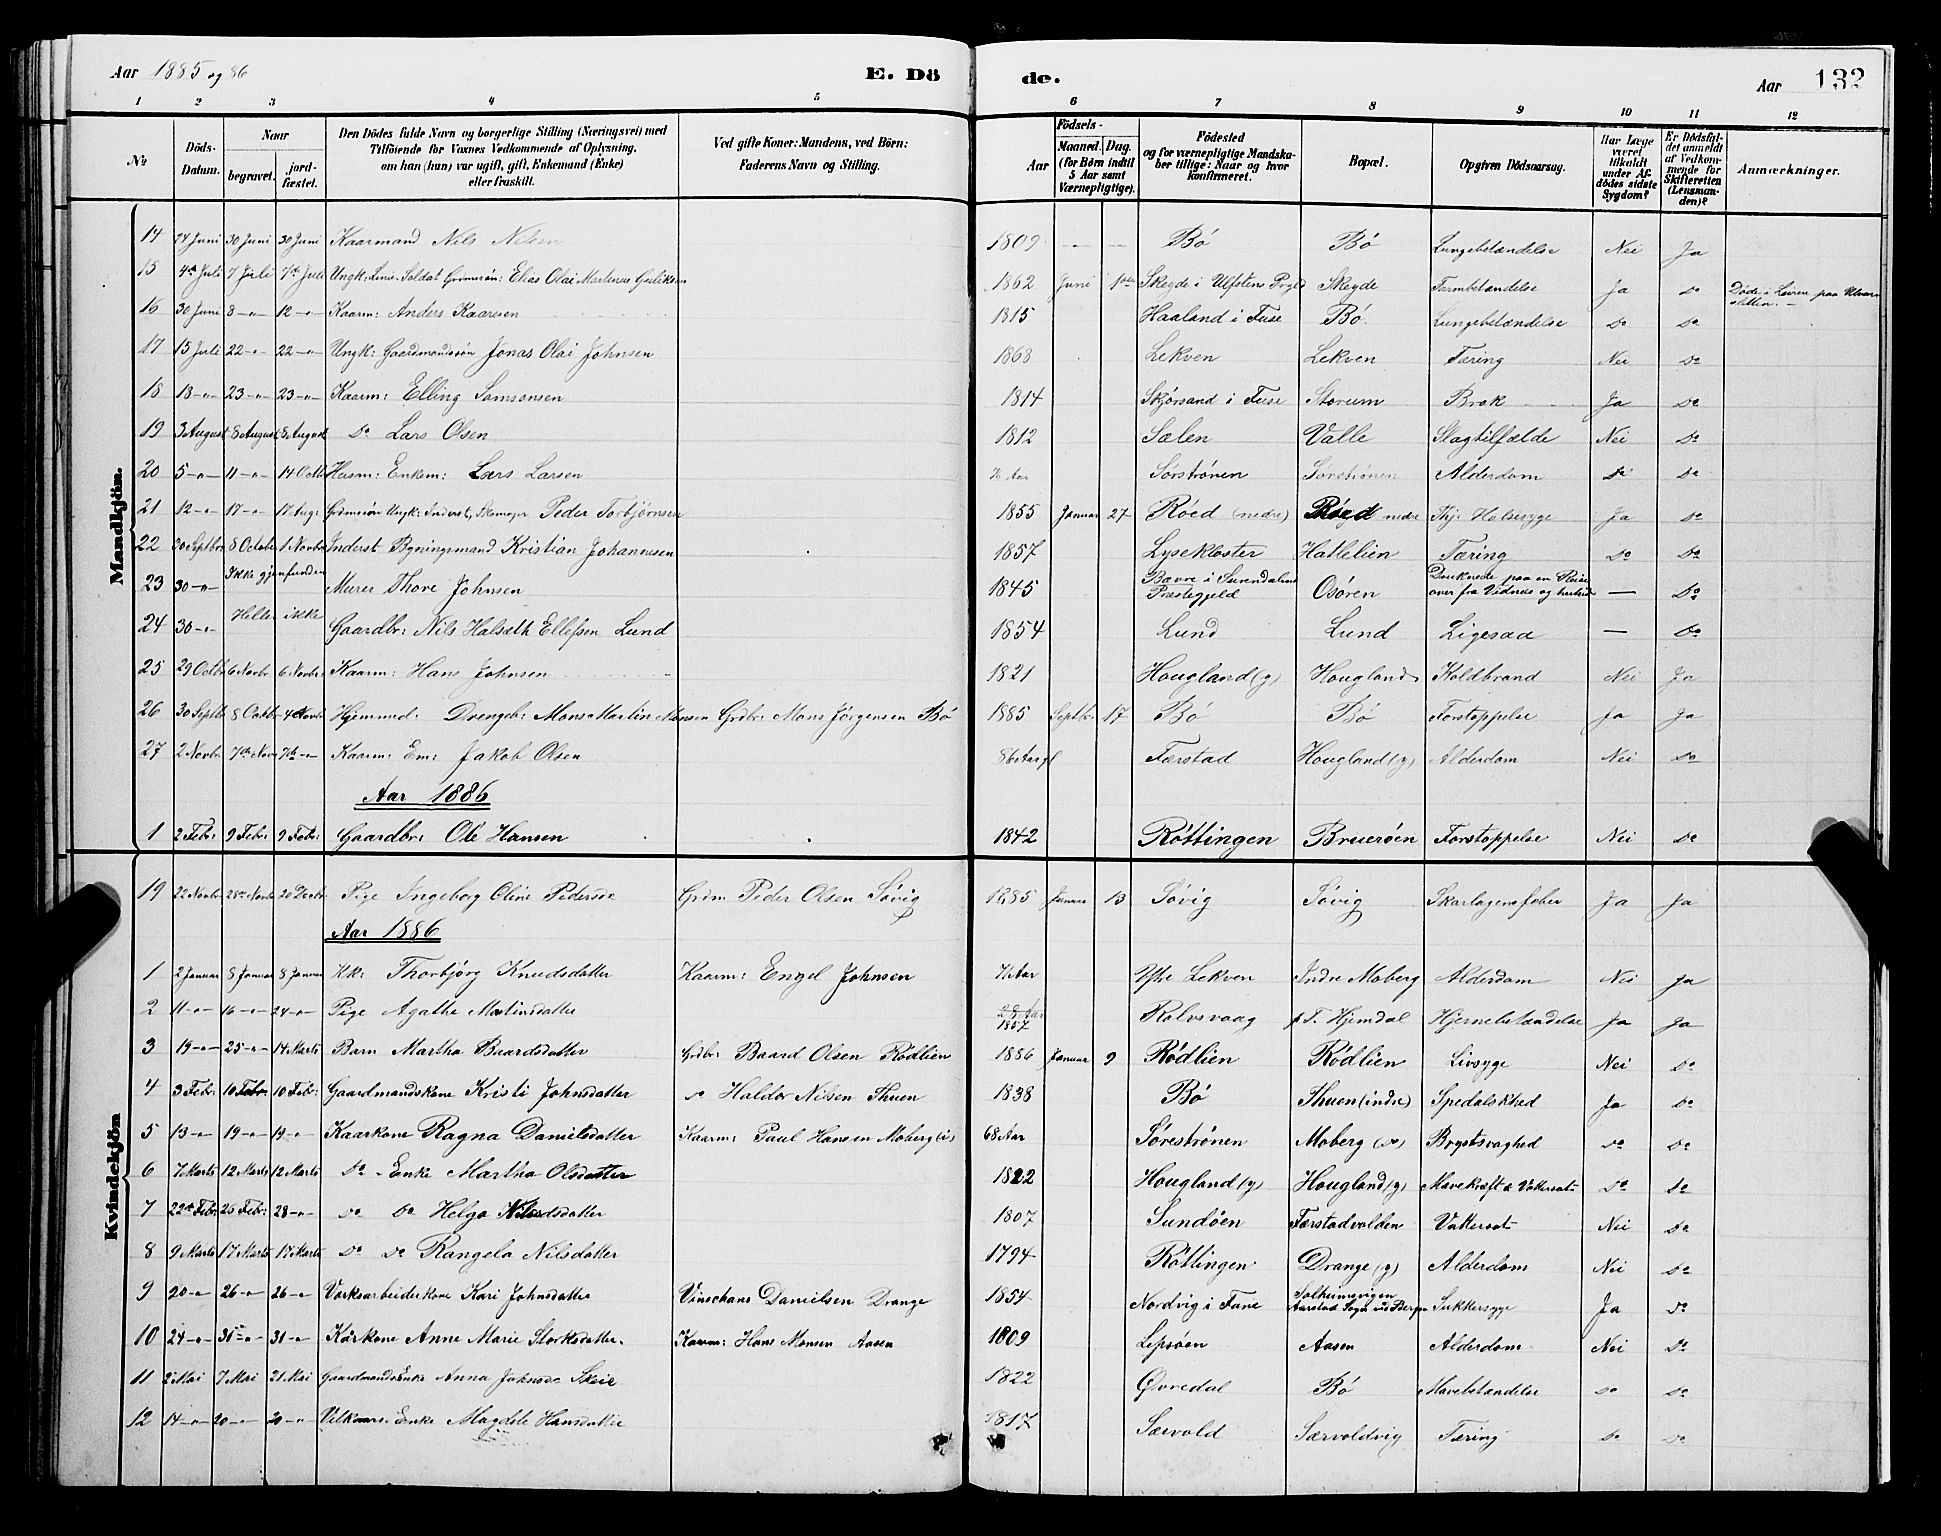 Aar 1885 og 86 E. Dö de. Aar 132
1 2 3 4 5 6 7 8 9 10 11 12
No Döds-Datum. Naar begravet. jordfæstet. Den Dödes fulde Navn og borgerlige Stilling (Næringsvei) med Tilföiende for Voxnes Vedkommende af Oplysning, om han (hun) var ugift, gift, Enkemand (Enke) eller fraskilt. Ved gifte Koner: Mandens, ved Börn: Faderens Navn og Stilling. Födsels- Aar Maaned. Dag. (for Börn indtil 5 Aar samt Værnepligtige). Födested og for værnepligtige Mandskaber tillige: Naar og hvor konfirmeret. Bopæl. Opgiven Dödsaarsag. Har Læge været tilkaldt under Afdödes sidste Sygdom? Er Dödsfaldet anmeldt af Vedkommende for Skifteretten (Lensmanden)? Anmærkninger.
Mandkjön.
14 24 Juni 30 Juni 30 Juni Kaarmand Nils Nilsen 1809 Bö Bö Lungebetændelse Nei Ja
15 4de Juli 7 Juli 7de Juli Ungk: Linie-Soldat Grdmssön: Elias Olai Martinus Guliksen 1862 Juni Skeyde i Ulfstens Prgld Skeyde Tarmbetændelse Ja Do Döde i Leiren paa
16 30 Juni 8 -"- 12 -"- Kaarm: Anders Kaaresen 1815 Haaland i Fuse Bö Lungebetændelse Do Do
17 15 Juli 22 -"- 22 -"- Ungk: Gaardmandssön Jonas Olai Johnsen 1868 Lekven Lekven Tæring Nei Do
18 18 -"- 23 -"- 23 -"- Kaarm: Elling Samsonsen 1814 Skjörsand i Fuse Storum Brok Ja Do
19 3 August 8 August 8 August Do Lars Olsen 1812 Sælen Valle Slagtilfælde Nei Do
20 5 -"- 11 -"- 14 Octb Husm: Enkem: Lars Larsen Aar Sörströnen Sörströnen Alderdom Do Do
21 12 -"- 17 -"- 17 Aug: Grdmssön Ungk: Inderst, Skomager Peder Torbjörnsen 1855 Januar 27 Röed (nedre) Röed nedre Thj: Halssyge Ja Do
22 20 Septbr 8 Octobr 1 Novbr Inderst Bygningsmand Kristian Johannesen 1857 Lysekloster Hatlelien Tæring Do Do
23 30 -"- Ikke gjenfunden Murer Thore Johnsen 1845 Bævre i Surendalens Præstegjeld Osören Druknede paa en Reise over fra Vidnæs og herhid — Do
24 30 -"- Heller ikke Gaardbr: Nils Halsæth Ellefsen Lund 1854 Lund Lund Ligesaa — Do
25 29 Octbr 6 Novbr 6 Novbr. Kaarm: Hans Johnsen 1821 Hougland (y) Hougland Koldbrand Nei Ja
26 30 Septbr 8 Octbr 4 Novbr Hjemmed: Drengeb: Mons Martin Monsen Grdbr: Mons Jörgensen Bö 1885 Septbr: 17 Bö Bö Forstoppelse Ja Ja
27 2 Novbr. 7de Nov 7de -"- Kaarm: Em: Jakob Olsen 86 Aar gl Færstad Hougland (y) Alderdom Nei Do
Aar 1886
1 2 Febr: 9 Febr: 9 Febr: Gaardbr: Ole Hansen 1842 Röttingen Brueröen Forstoppelse Nei Do
Kvindekjön
19 22 Novbr 28 Novbr 20 Decbr Pige Ingeborg Oline Pedersdr Grdm Peder Olsen Sövig 1885 Januar 13 Sövig Sövig Skarlagensfeber Ja Ja
Aar 1886
1 2 Januar 8 Januar 8 Januar Kk: Thorbjörg Knudsdatter Kaarm: Engel Johnsen Aar Ytre Lekven Indre Moberg Alderdom Nei Ja
2 11 -"- 16 -"- 24 -"- Pige Agathe Martinsdatter 28 Aar 1857 Rolvsvaag p.T. Hjemdal Hjernebetændelse Ja Ja
3 19 -"- 25 -"- 14 Marts Barn Martha Baardsdatter Grdbr: Baard Olsen Rödlien 1886 Januar 9 Rödlien Rödlien Livsyge Nei Do
4 3 Febr: 10 Febr. 10 Febr: Gaardmandskone Kristi Johnsdatter Do Haldor Nilsen Thuen 1838 Bö Thuen (indre) Spedalskhed Ja Do
5 13 -"- 19 -"- 19 -"- Kaarkone Ragna Danielsdatter Kaarm: Paul Hansen Moberg (i) 68 Aar Söreströnen Moberg (Do) Brystsvaghed Do Do
6 7 Marts 12 Marts 12 Marts Do - Enke Martha Olsdatter 1822 Hougland (y) Hougland (y) Mavekræft & Vattersot Do Do
7 22de Febr: 26 Febr: 28 -"- Do Do Helga Nilsdatter 1807 Sundöen Færstadvolden Vattersot Nei Do
8 9 Marts 17 Marts 17 Marts Do Do Rangela Nilsdatter 1794 Röttingen Drange (y) Alderdom Nei Do
9 20 -"- 26 -"- 26 -"- Værksarbeiderkone Kari Johnsdatter Vinschans Danielsen Drange 1854 Nordvig i Fane Solheimsvigen Aarstad Sogn ved Bergen Sukkersyge Ja Do
10 24 -"- 31 -"- 31 -"- Kårkone Anne Marie Storksdatter. Kaarm: Hans Monsen Aasen 1809 Lepsöen Aasen Alderdom Nei Do
11 2 Mai 7 Mai 21 Mai Gaardmandsenke Anna Johnsdr Skeie 1822 Övredal Bö Mavebetændelse Do Do
12 14 -"- 20 -"- 20 -"- Vilkaars-Enke Magdele Hansdatter 1817 Særvold Særvoldvig Tæring Do Do